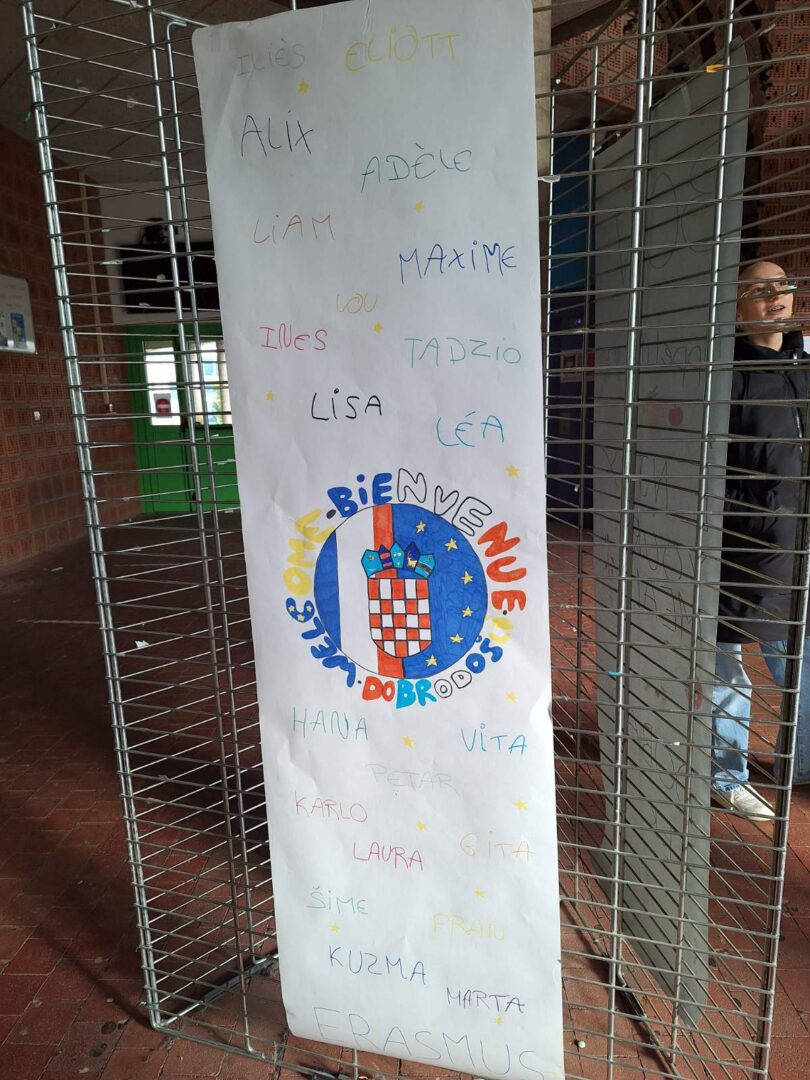 ILIÈS ELIOTT
ALIX
ADÈLE
LIAM
MAXIME
LOU
INES
TADZIO
LISA
LÉA
WELCOME · BIENVENUE · DOBRODOŠLI
HANA
VITA
PETAR
KARLO
LAURA
GITA
ŠIME
FRAN
KUZMA
MARTA
ERASMUS